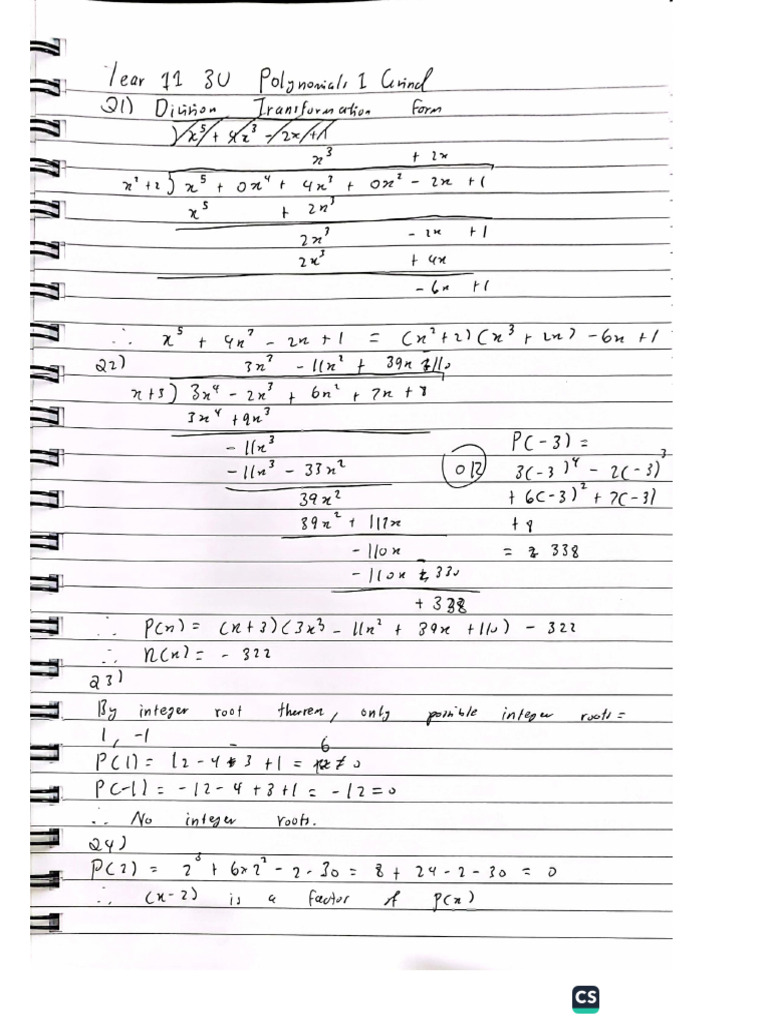 Year 11 3U Polynomials 1 Grind
Q1) Division Transformation Form
x⁵ + 4x³ - 2x + 1
x³ + 2x
x² + 2 ) x⁵ + 0x⁴ + 4x³ + 0x² - 2x + 1
x⁵ + 2x³
2x³ - 2x + 1
2x³ + 4x
- 6x + 1
∴ x⁵ + 4x³ - 2x + 1 = (x² + 2)(x³ + 2x) - 6x + 1
Q2) 3x³ - 11x² + 39x - 110
x + 3 ) 3x⁴ - 2x³ + 6x² + 7x + 8
3x⁴ + 9x³
- 11x³
- 11x³ - 33x²
39x²
39x² + 117x
- 110x
- 110x - 330
+ 338
OR
P(-3) =
3(-3)⁴ - 2(-3)³
+ 6(-3)² + 7(-3)
+ 8
= 338
∴ P(x) = (x+3)(3x³ - 11x² + 39x + 110) - 322
∴ R(x) = - 322
Q3)
By integer root theorem, only possible integer roots =
1, -1
P(1) = 12 - 4 - 3 + 1 = 6 ≠ 0
P(-1) = -12 - 4 + 3 + 1 = -12 = 0
∴ No integer roots.
Q4)
P(2) = 2³ + 6x2² - 2 - 30 = 8 + 24 - 2 - 30 = 0
∴ (x-2) is a factor of P(x)
CS